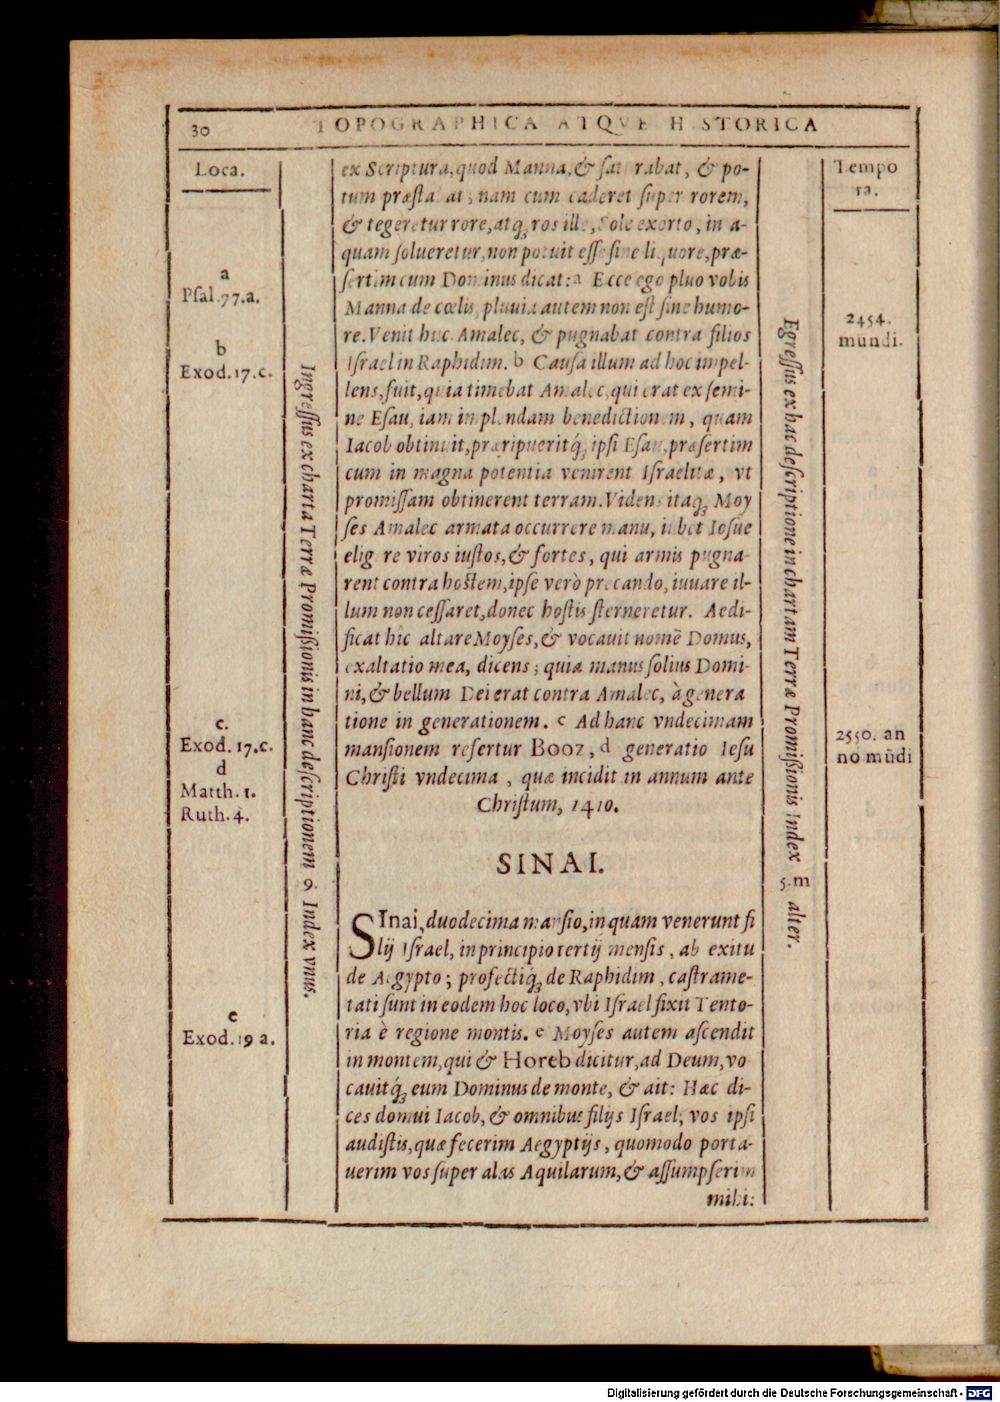 30
TOPOGRAPHICA ATQVE HISTORICA
Loca.
a
Psal.77.a.
b
Exod.17.c.
c.
Exod. 17.c.
d
Matth. 1.
Ruth. 4.
e
Exod. 19 a.
Ingreſſus ex charta Terræ Promißionis in hanc deſcriptionem 9. Index vnus.
ex Scriptura, quod Manna, & ſaturabat, & po-
tum præſtabat; nam cum caderet ſuper rorem,
& tegeretur rore, atq; ros ille, Sole exorto, in a-
quam ſolueretur, non potuit eſſe ſine liquore, præ-
ſertim cum Dominus dicat: a Ecce ego pluo vobis
Manna de cœlis, pluuia autem non eſt ſine humo-
re. Venit huc Amalec, & pugnabat contra filios
Iſrael in Raphidim. b Cauſa illum ad hoc impel-
lens, fuit, quia timebat Amalec, qui erat ex ſemi-
ne Eſau, iam implendam benedictionem, quam
Iacob obtinuit, præripueritq́; ipſi Eſau, præſertim
cum in magna potentia venirent Iſraelitæ, vt
promiſſam obtinerent terram. Videns itaq; Moy
ſes Amalec armata occurrere manu, iubet Ioſue
eligere viros iuſtos, & fortes, qui armis pugna-
rent contra hoſtem, ipſe verò precando, iuuare il-
lum non ceſſaret, donec hoſtis ſterneretur. Aedi-
ficat hic altare Moyſes, & vocauit nomē Domus,
exaltatio mea, dicens; quia manus ſolius Domi-
ni, & bellum Dei erat contra Amalec, à genera
tione in generationem. c Ad hanc vndecimam
manſionem refertur Booz, d generatio Ieſu
Chriſti vndecima, quæ incidit in annum ante
Chriſtum, 1410.
SINAI.
SInai, duodecima manſio, in quam venerunt fi
lij Iſrael, in principio tertij menſis, ab exitu
de Aegypto; profectiq́; de Raphidim, caſtrame-
tati ſunt in eodem hoc loco, vbi Iſrael fixit Tento-
ria è regione montis. e Moyſes autem aſcendit
in montem, qui & Horeb dicitur, ad Deum, vo
cauitq́; eum Dominus de monte, & ait: Hæc di-
ces domui Iacob, & omnibus filijs Iſrael; vos ipſi
audiſtis, quæ fecerim Aegyptijs, quomodo porta-
uerim vos ſuper alas Aquilarum, & aſſumpſerim
mihi:
Egreſſus ex hac deſcriptione in chartam Terræ Promißionis Index 5.m alter.
Tempo
ra.
2454.
mundi.
2550. an
no mūdi
Digitalisierung gefördert durch die Deutsche Forschungsgemeinschaft - DFG